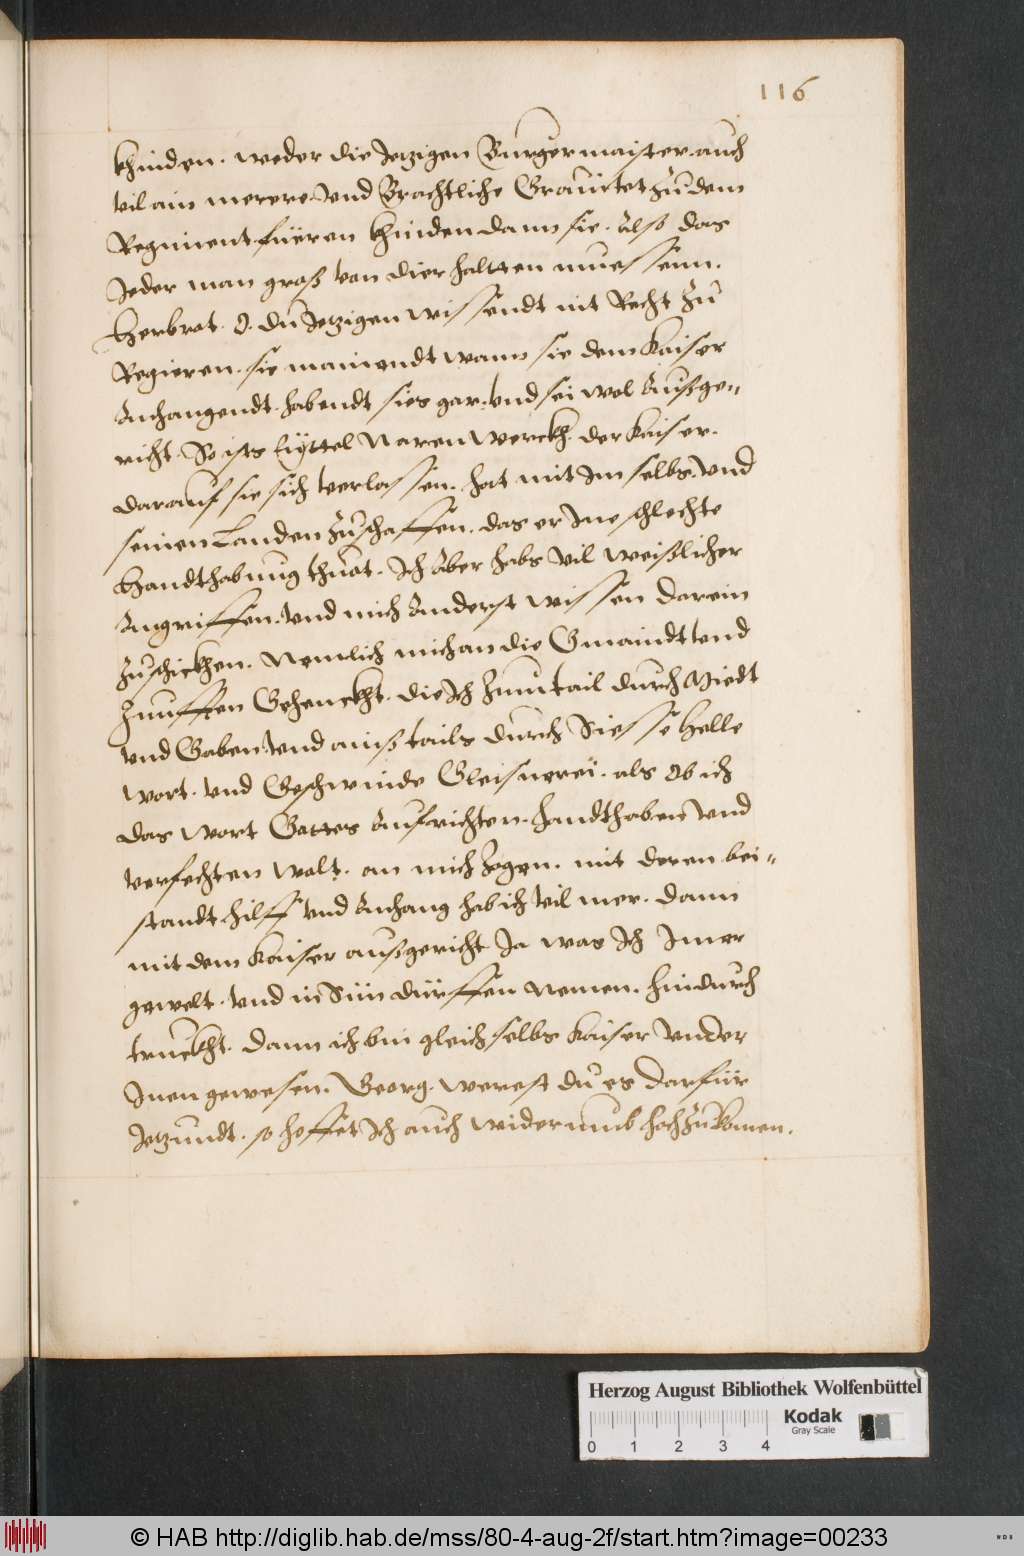 116
khinden. weder die Jetzigen Burgermaister. auch
vil ain merere. Vnd Brachtliche Grauitet zu dem
Regiment füeren khinden dann sie. Also das
Jeder man groß von dier haltten muessenn.
Herbrot. O. du Jetzigen wissendt nit Recht zu
Regieren. sie mainendt wann sie dem Kaiser
Anhangendt. habendt sies gar. vnd sei wol Außge=
richt. So ists Eyttel Naren werckh. der Kaiser.
darauf sie sich verlassen. hat mit Im selbs. Vnd
seinen Landen zuschaffen. das er Ine schlechte
Handthabung thuet. Ich Aber habs Vil weißlicher
Angriffen. Vnd mich Anderst wissen darein
zuschickhen. Nemlich mich an die Gmaindt vnd
Zunfften Gehenckht. die Ich zum tail durch Miedt
vnd Gaben. vnd ainß tails durch Siesse Helle
wort. vnd Geschwinde Gleisnereÿ. als Ob ich
das Wort Gottes Aufrichten. handthaben Vnd
verfechten wolt. an mich zogen. mit deren bei=
standt. hilff vnd Anhang hab ich vil mer. dann
mit dem Kaiser außgericht Ja was Ich Imer
gewelt. vnd in Sün dürffen nemen. hindurch
truckht. dann ich bin gleich selbs Kaiser Vnder
Inen gewesen. Georg. werest du es darfür
Jetzundt. so hoffet Ich auch widerumb hoch zu komen.
Herzog August Bibliothek Wolfenbüttel
Kodak
Gray Scale
0 1 2 3 4
© HAB http://diglib.hab.de/mss/80-4-aug-2f/start.htm?image=00233